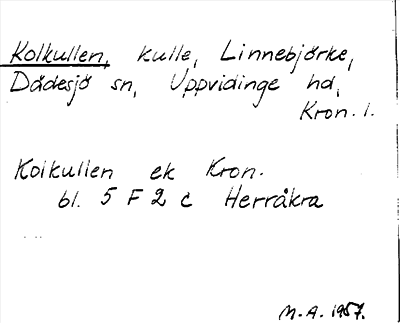 Kolkullen, kulle, Linnebjörke,
Dädesjö sn, Uppvidinge hd,
Kron. l.
Kolkullen ek Kron.
bl. 5 F 2 c Herråkra
M.A. 1957.